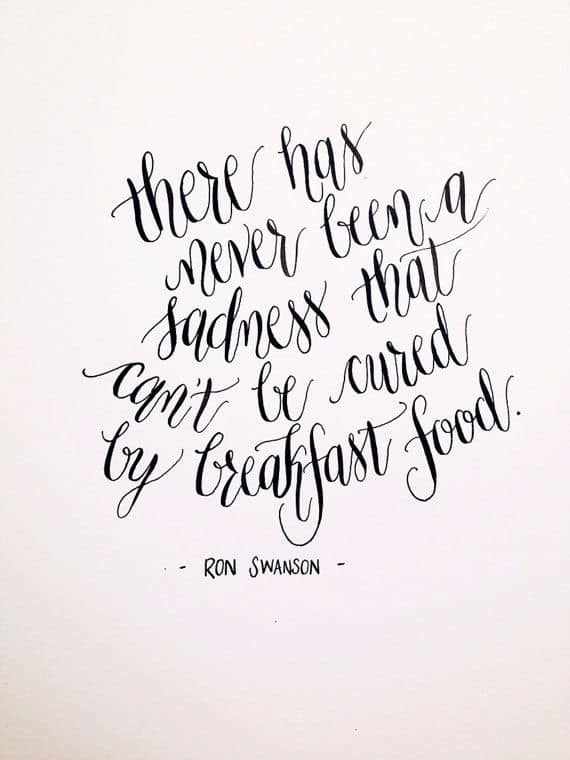 there has
never been a
sadness that
can't be cured
by breakfast food.
- RON SWANSON -